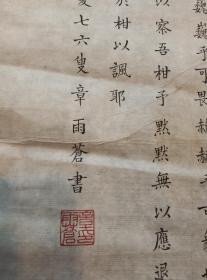 巍乎可畏赫赫乎可
以察吾柑予默默無以應退
於柑以諷耶
七六叟章雨蒼書